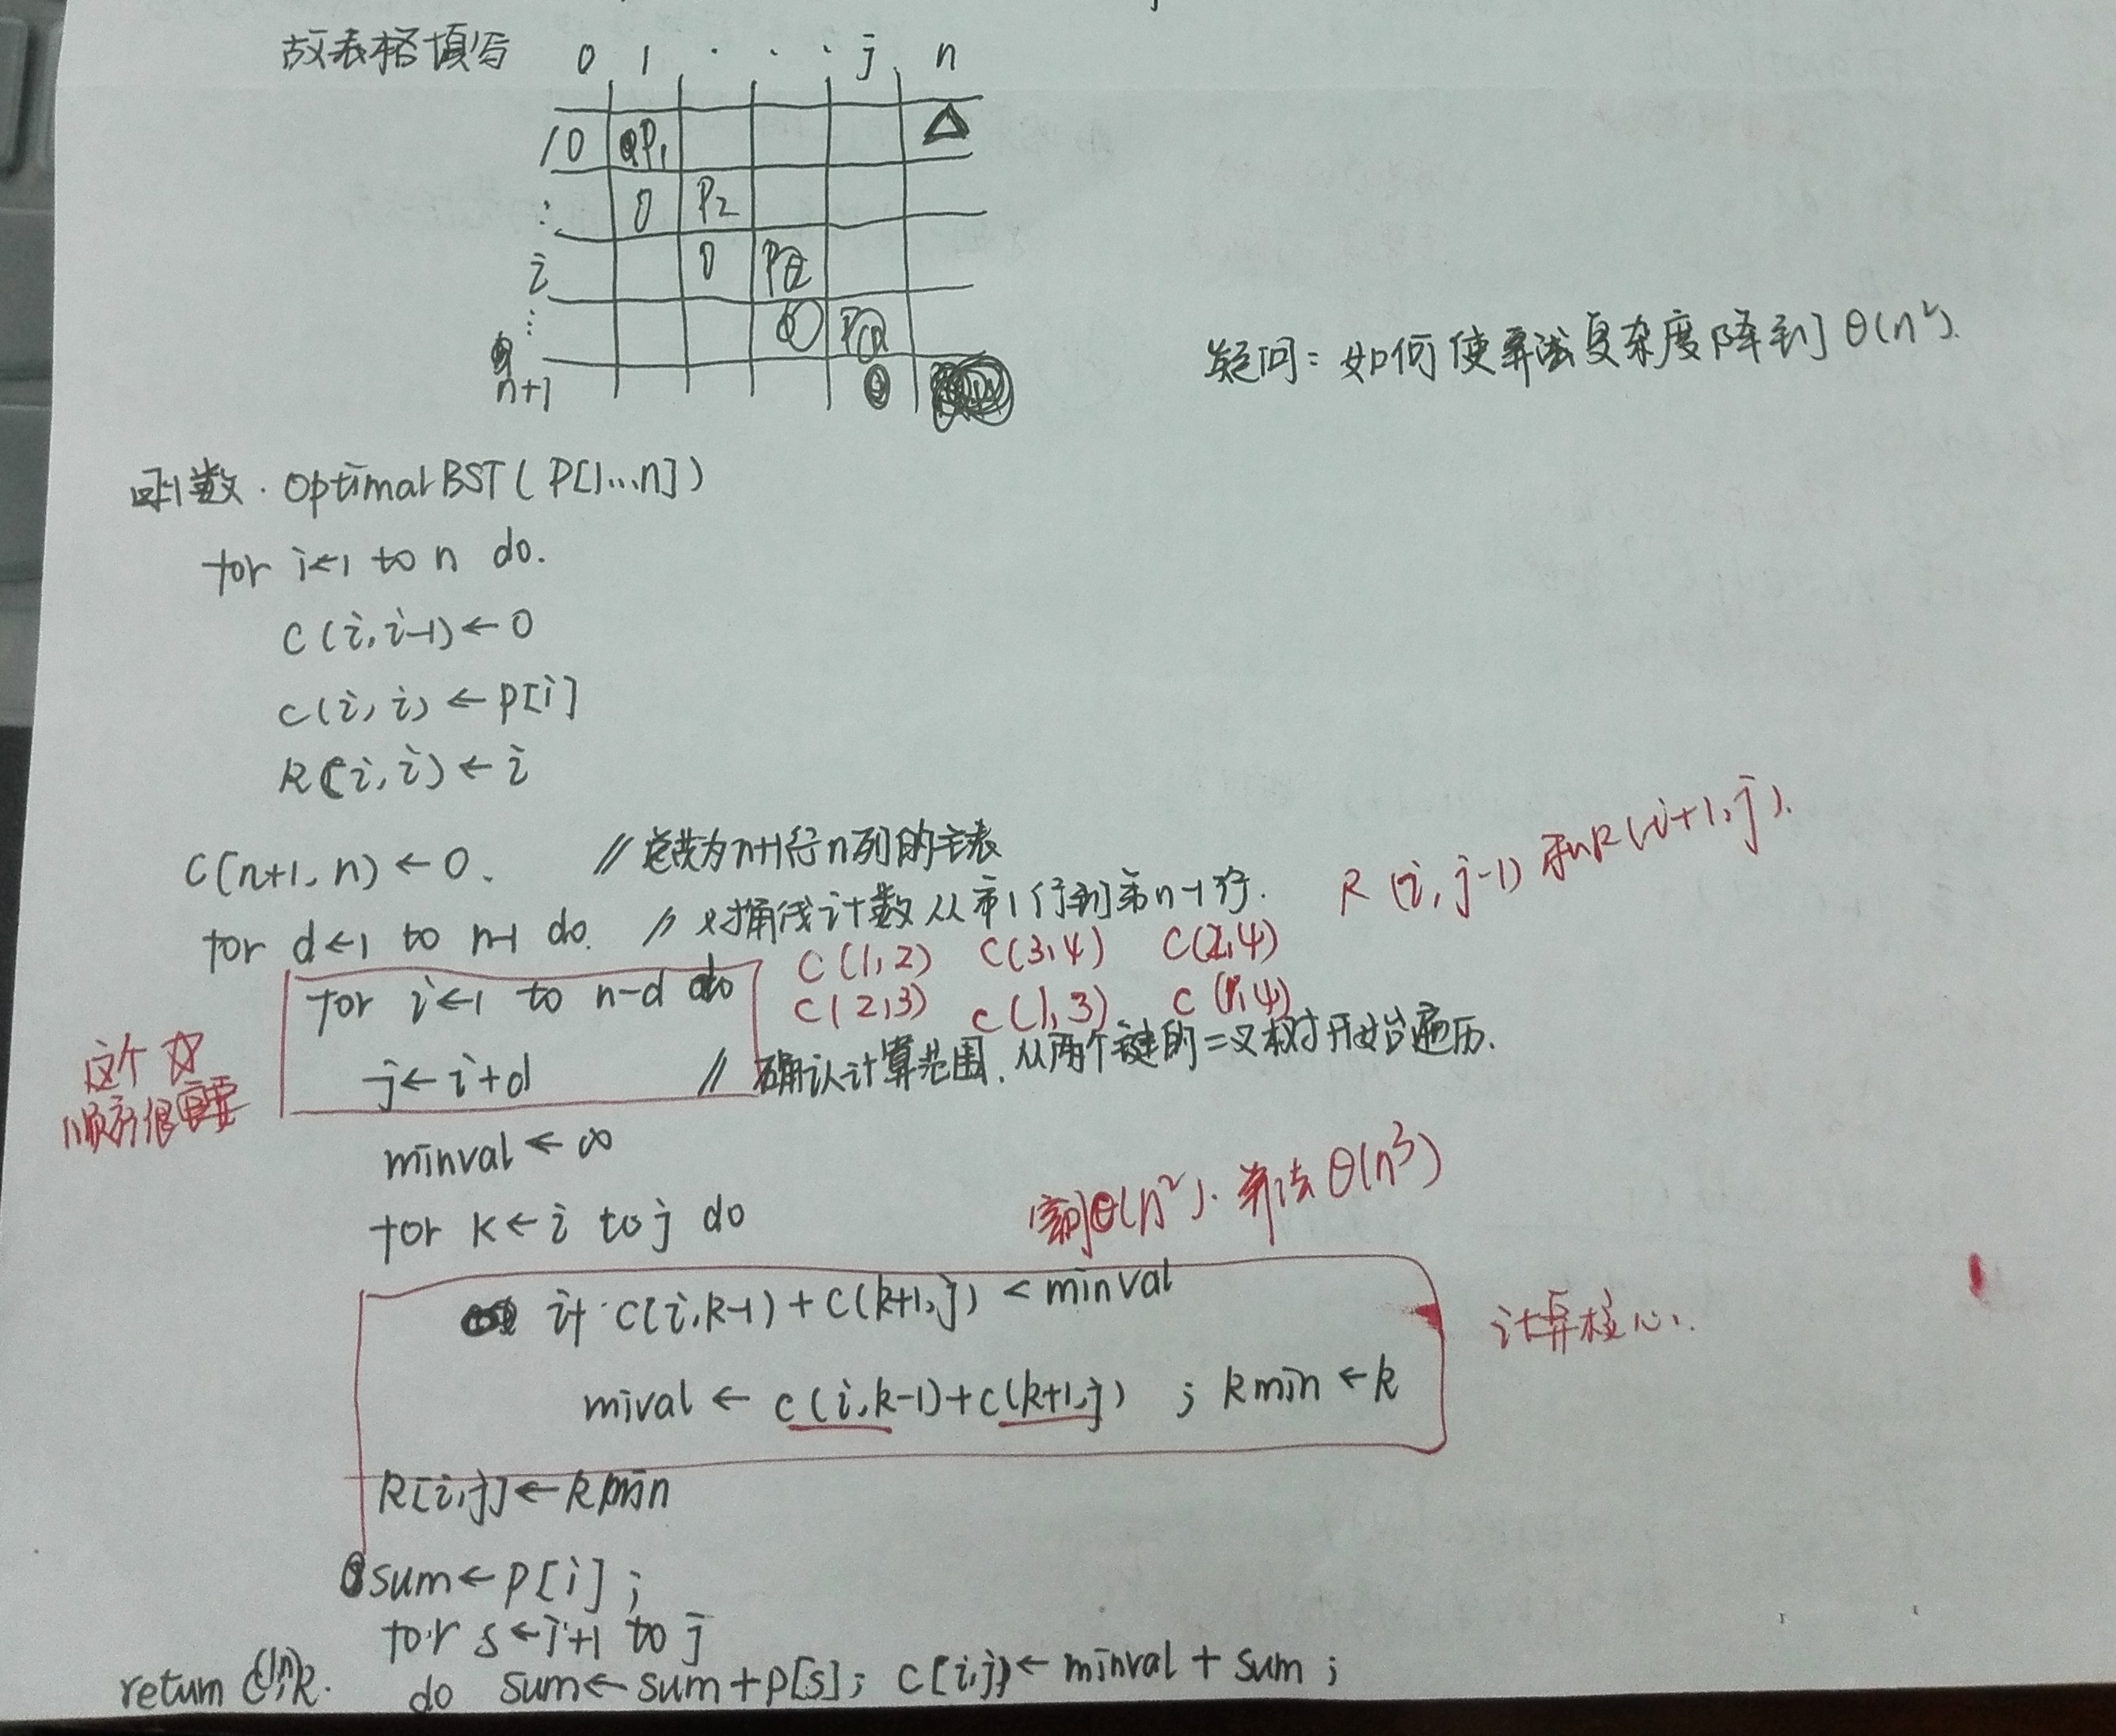 故表格填写
0 1 · · · j n
1 0 P1
: 0 P2
i 0 P
⋮ P
n+1 0
疑问：如何使算法复杂度降到 θ(n²).
函数. OptimalBST( P[1...n])
for i←1 to n do.
C(i, i-1) ← 0
C(i, i) ← P[i]
R(i, i) ← i
C(n+1, n) ← 0. //总共为n+1行n列的主表
R(i, j-1) 和R(i+1, j).
for d←1 to n-1 do. //对角线计数 从第1行到第n-1行.
C(1,2) C(3,4) C(2,4)
for i←1 to n-d do
C(2,3) C(1,3) C(1,4)
j ← i+d //确认计算范围,从两个键的二叉树开始遍历.
这个
顺序很重要
minval ← ∞
for k ← i to j do
空间θ(n²). 算法θ(n³)
计 C(i,k-1) + C(k+1,j) < minval
计算核心.
mival ← C(i,k-1)+C(k+1,j) ; kmin ← k
R[i,j] ← kmin
sum ← P[i] ;
for s ← i+1 to j
do sum ← sum + P[s]; C[i,j] ← minval + sum ;
return C(1,n),R.